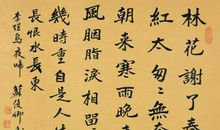 林花謝了春
紅太匆匆
朝來寒雨晚
風胭脂淚相
幾時重自是人
長恨水長東
李煜烏夜啼 蘇俊卿